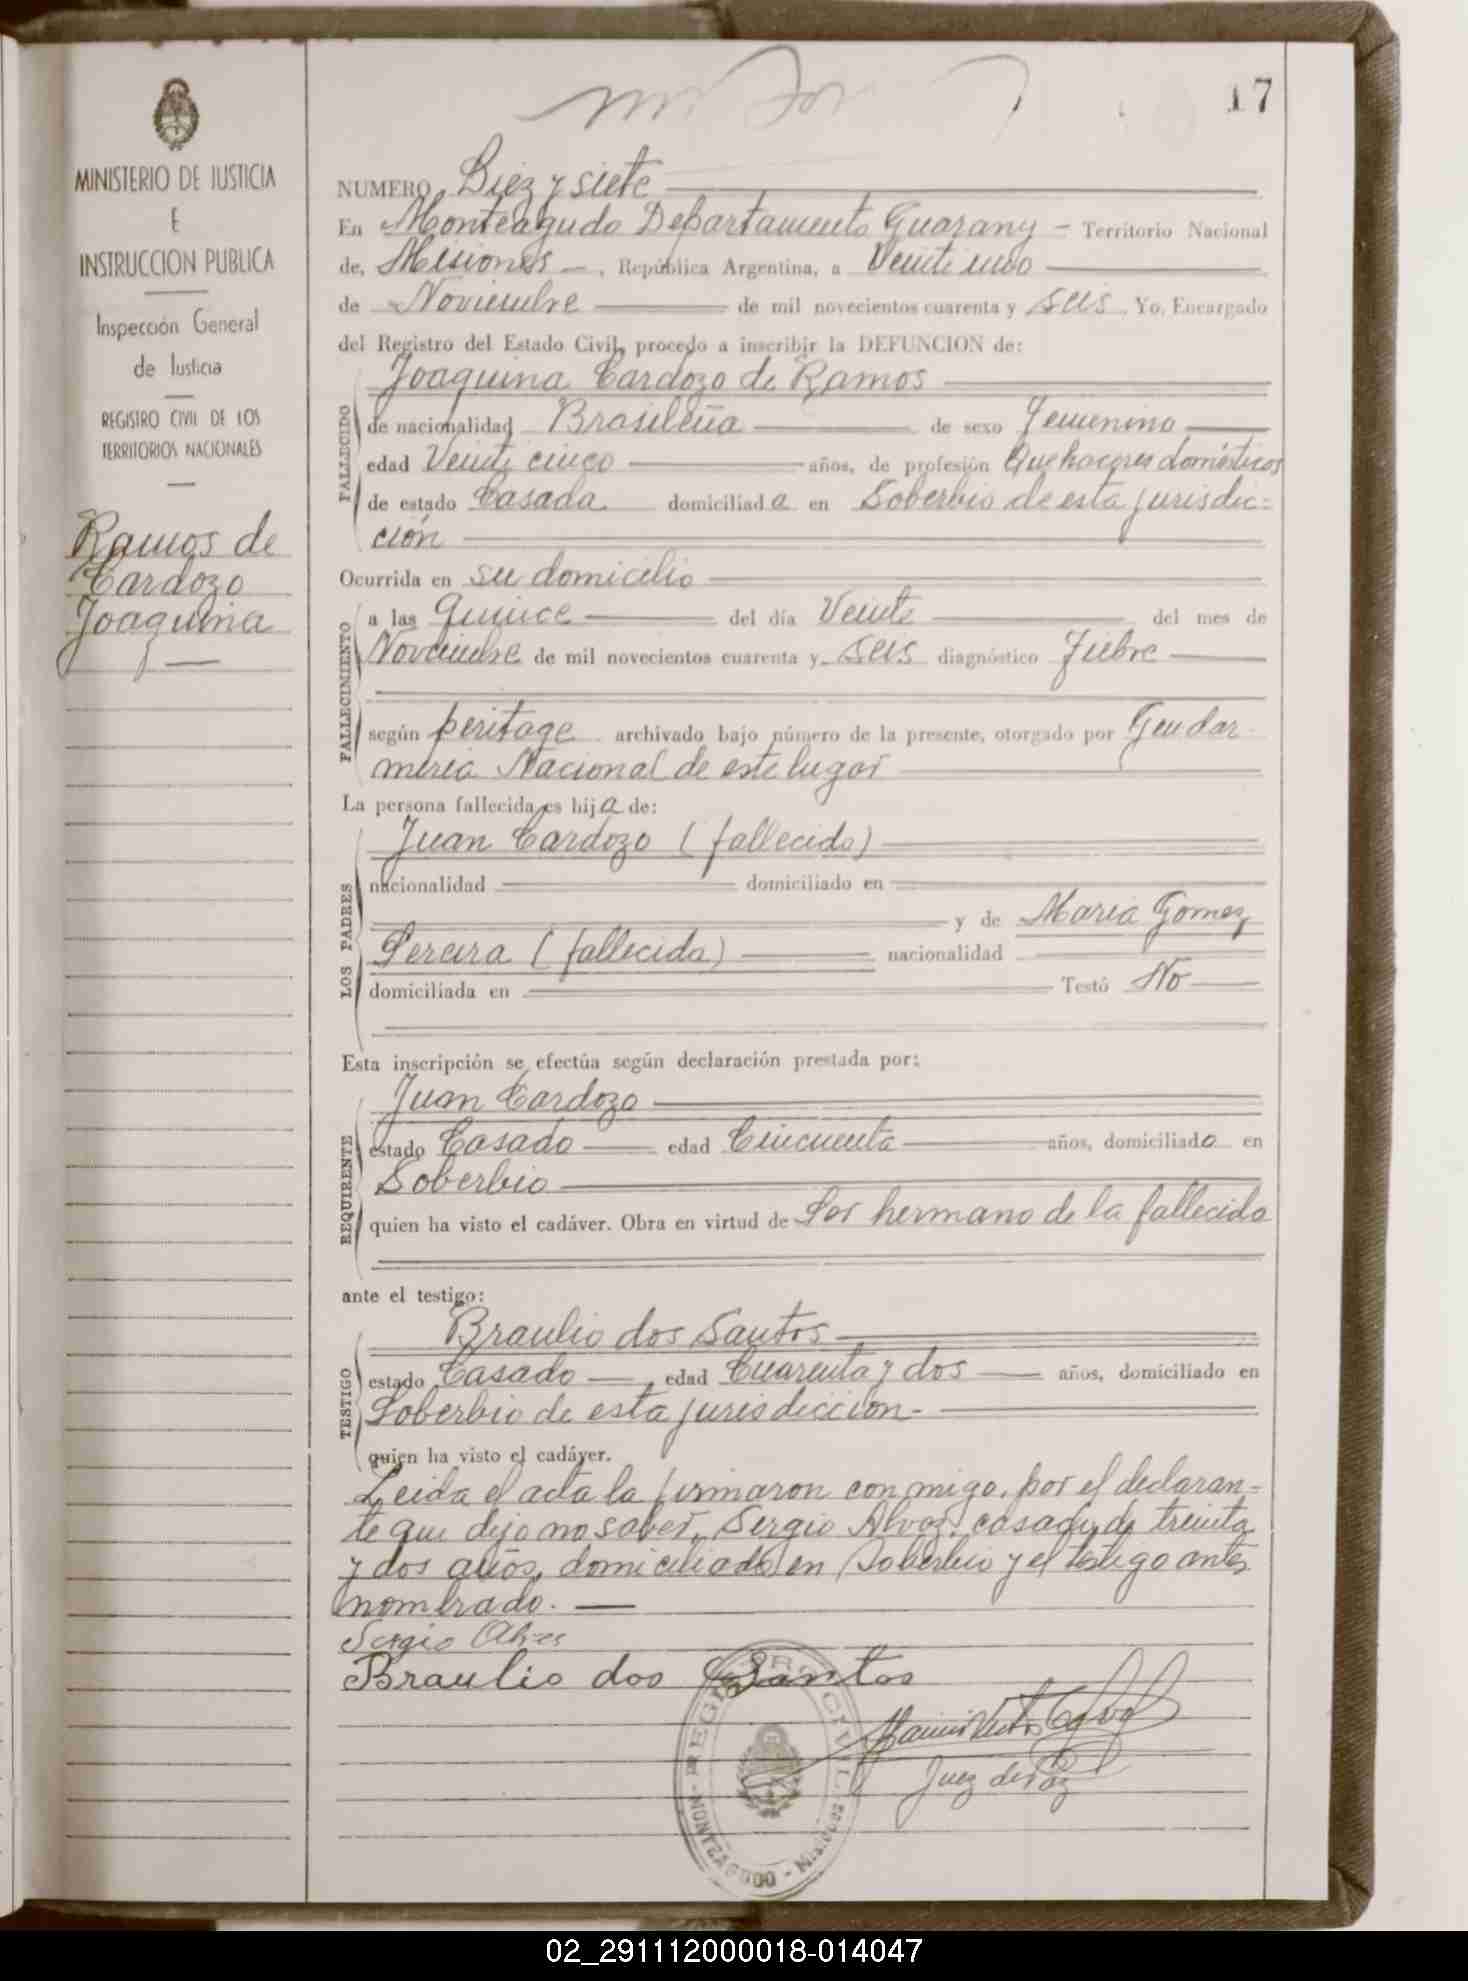 17
MINISTERIO DE JUSTICIA
E
INSTRUCCION PUBLICA
Inspección General
de Justicia
REGISTRO CIVIL DE LOS
TERRITORIOS NACIONALES
Ramos de
Cardozo
Joaquina
NUMERO, Diez y siete
En Monteagudo Departamento Guarany - Territorio Nacional
de, Misiones -, República Argentina, a Veinte uno
de Noviembre de mil novecientos cuarenta y seis. Yo, Encargado
del Registro del Estado Civil, procedo a inscribir la DEFUNCION de:
Joaquina Cardozo de Ramos
FALLECIDO
de nacionalidad Brasileña de sexo Femenino
edad Veinte cinco años, de profesión Quehaceres domésticos
de estado Casada domiciliada en Soberbio de esta jurisdic=
ción
Ocurrida en su domicilio
FALLECIMIENTO
a las Quince del día Veinte del mes de
Noviembre de mil novecientos cuarenta y seis diagnóstico Fiebre
según peritage archivado bajo número de la presente, otorgado por Gendar
meria Nacional de este lugar
La persona fallecida es hija de:
LOS PADRES
Juan Cardozo (fallecido)
nacionalidad domiciliado en
y de Maria Gomez
Pereira (fallecida) nacionalidad
domiciliada en Testó No
Esta inscripción se efectúa según declaración prestada por:
REQUIRENTE
Juan Cardozo
estado Casado edad Cincuenta años, domiciliado en
Soberbio
quien ha visto el cadáver. Obra en virtud de Ser hermano de la fallecida
ante el testigo:
TESTIGO
Braulio dos Santos
estado Casado, edad Cuarenta y dos años, domiciliado en
Soberbio de esta jurisdiccion-
quien ha visto el cadáver.
Leida el acta la firmaron conmigo, por el declaran=
te que dijo no saber, Sergio Alvez, casado, de treinta
y dos años, domiciliado en Soberbio y el testigo antes
nombrado.
Sergio Alves
Braulio dos Santos
REGISTRO CIVIL
MONTEAGUDO - Misiones
Juez de Paz
02_291112000018-014047